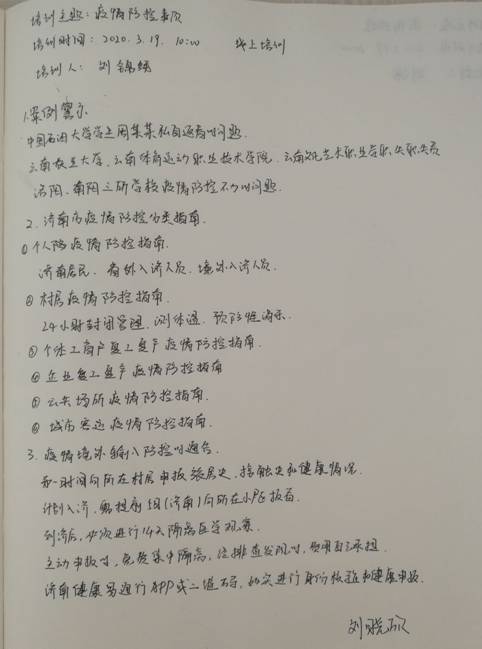 培训主题：疫情防控专项
培训时间：2020.3.19. 10:00 线上培训
培训人：刘
1.案例警示
中国石油大学学生周某某私自返青岛问题.
云南农业大学、云南体育运动职业技术学院、云南文化艺术职业学院
洛阳、南阳三所学校疫情防控不力问题.
2. 济南市疫情防控分类指南.
①个人防疫情防控指南.
济南居民、省外入济人员、境外入济人员.
②村居疫情防控指南.
24小时封闭管理、测体温、预防性消杀.
③个体工商户复工复产疫情防控指南.
④企业复工复产疫情防控指南
⑤公共场所疫情防控指南.
⑥城市客运疫情防控指南.
3. 疫情境外输入防控的通告.
第一时间向所在村居申报旅居史、接触史和健康情况.
计划入济，需提前(济南)向所在小区报告.
到济后，必须进行14天隔离医学观察.
主动申报的，免费集中隔离，经排查发现的，费用自己承担.
济南健康码通行APP或二维码，如实进行身份核验和健康申报.
刘晓